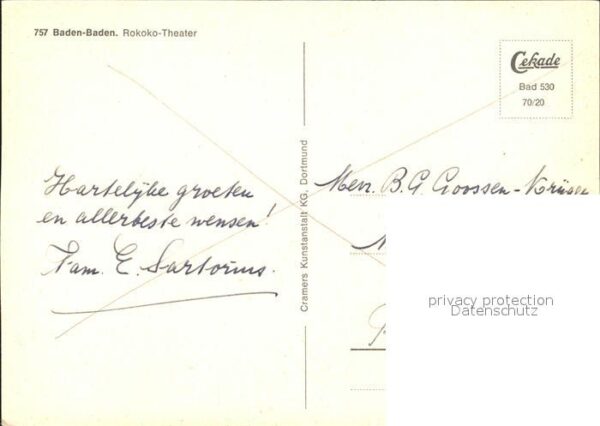 757 Baden-Baden. Rokoko-Theater
Cekade
Bad 530
70/20
Hartelijke groeten
en allerbeste wensen!
Fam. E. Sartorius.
Cramers Kunstanstalt KG, Dortmund
B.G. Goossen-
privacy protection
Datenschutz